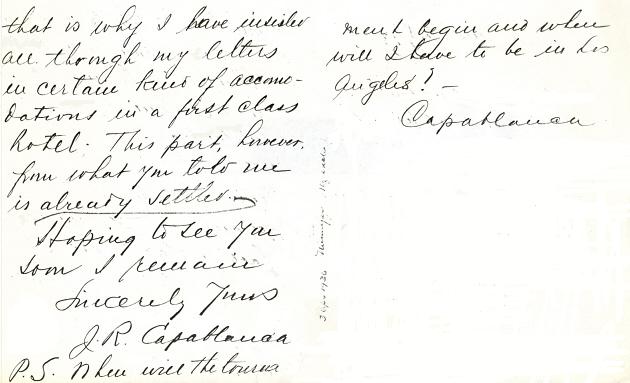 that is why I have insisted
all through my letters
in certain kind of accomo-
dations in a first class
hotel. This part, however,
from what you told me
is already settled.—
Hoping to see you
soon I remain
Sincerely Yours
J. R. Capablanca
P.S. When will the tourna
ment begin and when
will I have to be in Los
Angeles? —
Capablanca